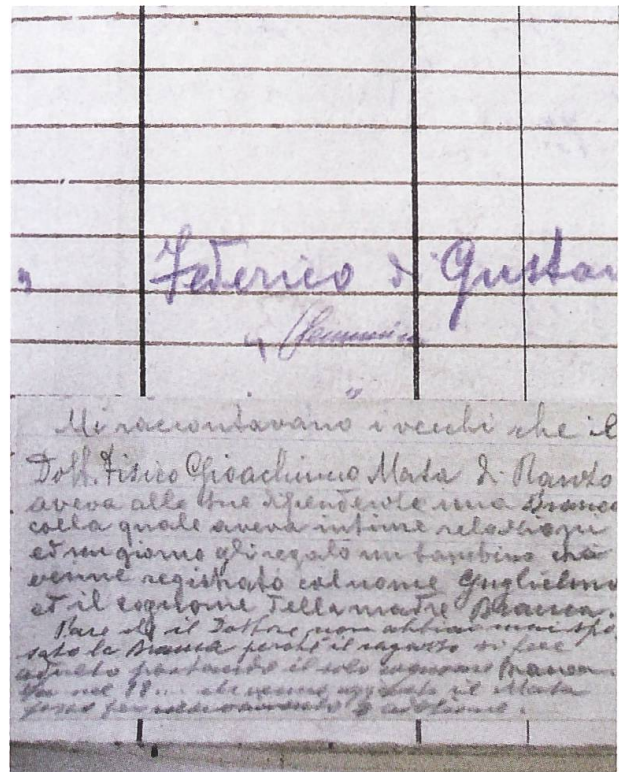 " Federico di Gusta
"
Mi raccontavano i vecchi che il
Dott. Fisico Gioachimo Mata di Ranzo
aveva alle sue dipendenze una Branca
colla quale aveva intime relazioni
ed un giorno gli regalò un bambino che
venne registrato col nome Guglielmo
ed il cognome della madre Branca.
Pare che il Dottore non abbia mai spo
sato la Branca perchè il ragazzo si fece
adulto portando il solo cognome Branca
nel 18.... venne il Mata